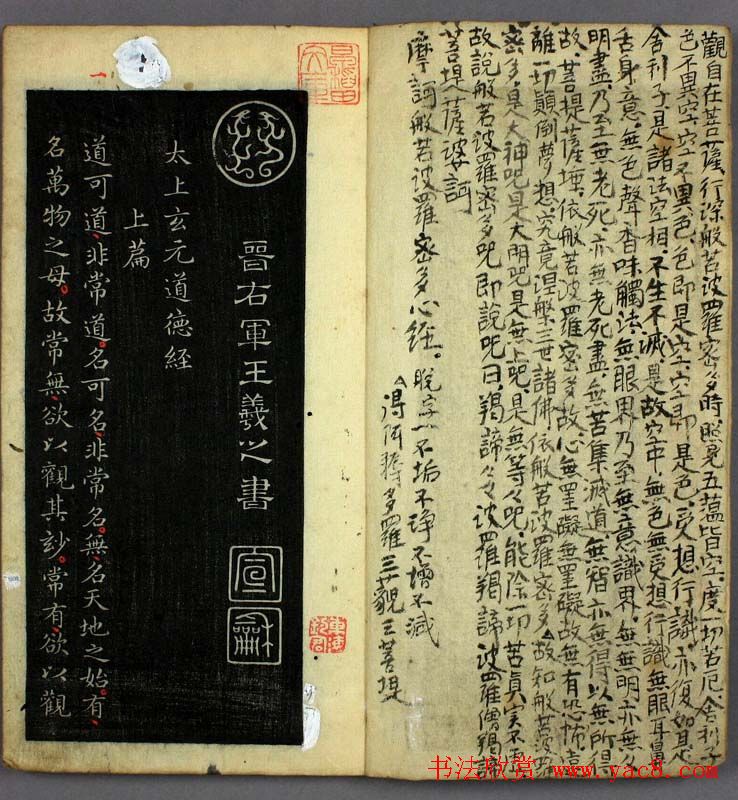 觀自在菩薩行深般若波羅密多時照見五蘊皆空度一切苦厄舍利子
色不異空空不異色色即是空空即是色受想行識亦復如是
舍利子是諸法空相不生不滅是故空中無色無受想行識無眼耳鼻
舌身意無色聲香味觸法無眼界乃至無意識界無無明亦無無
明盡乃至無老死亦無老死盡無苦集滅道無智亦無得以無所得
故菩提薩埵依般若波羅密多故心無罣礙無罣礙故無有恐怖遠
離一切顛倒夢想究竟涅槃三世諸佛依般若波羅密多故知般若波羅
密多是大神咒是大明咒是無上咒是無等々咒能除一切苦真實不虛
故說般若波羅密多咒即說咒曰揭諦々々波羅揭諦波羅僧揭諦
菩提薩婆訶
摩訶般若波羅密多心經 脫字一不垢不淨不增不減
得阿耨多羅三藐三菩提
晉右軍王羲之書
宣龢
太上玄元道德經
上篇
道可道非常道名可名非常名無名天地之始有
名萬物之母故常無欲以觀其妙常有欲以觀
书法欣赏 www.yac8.com